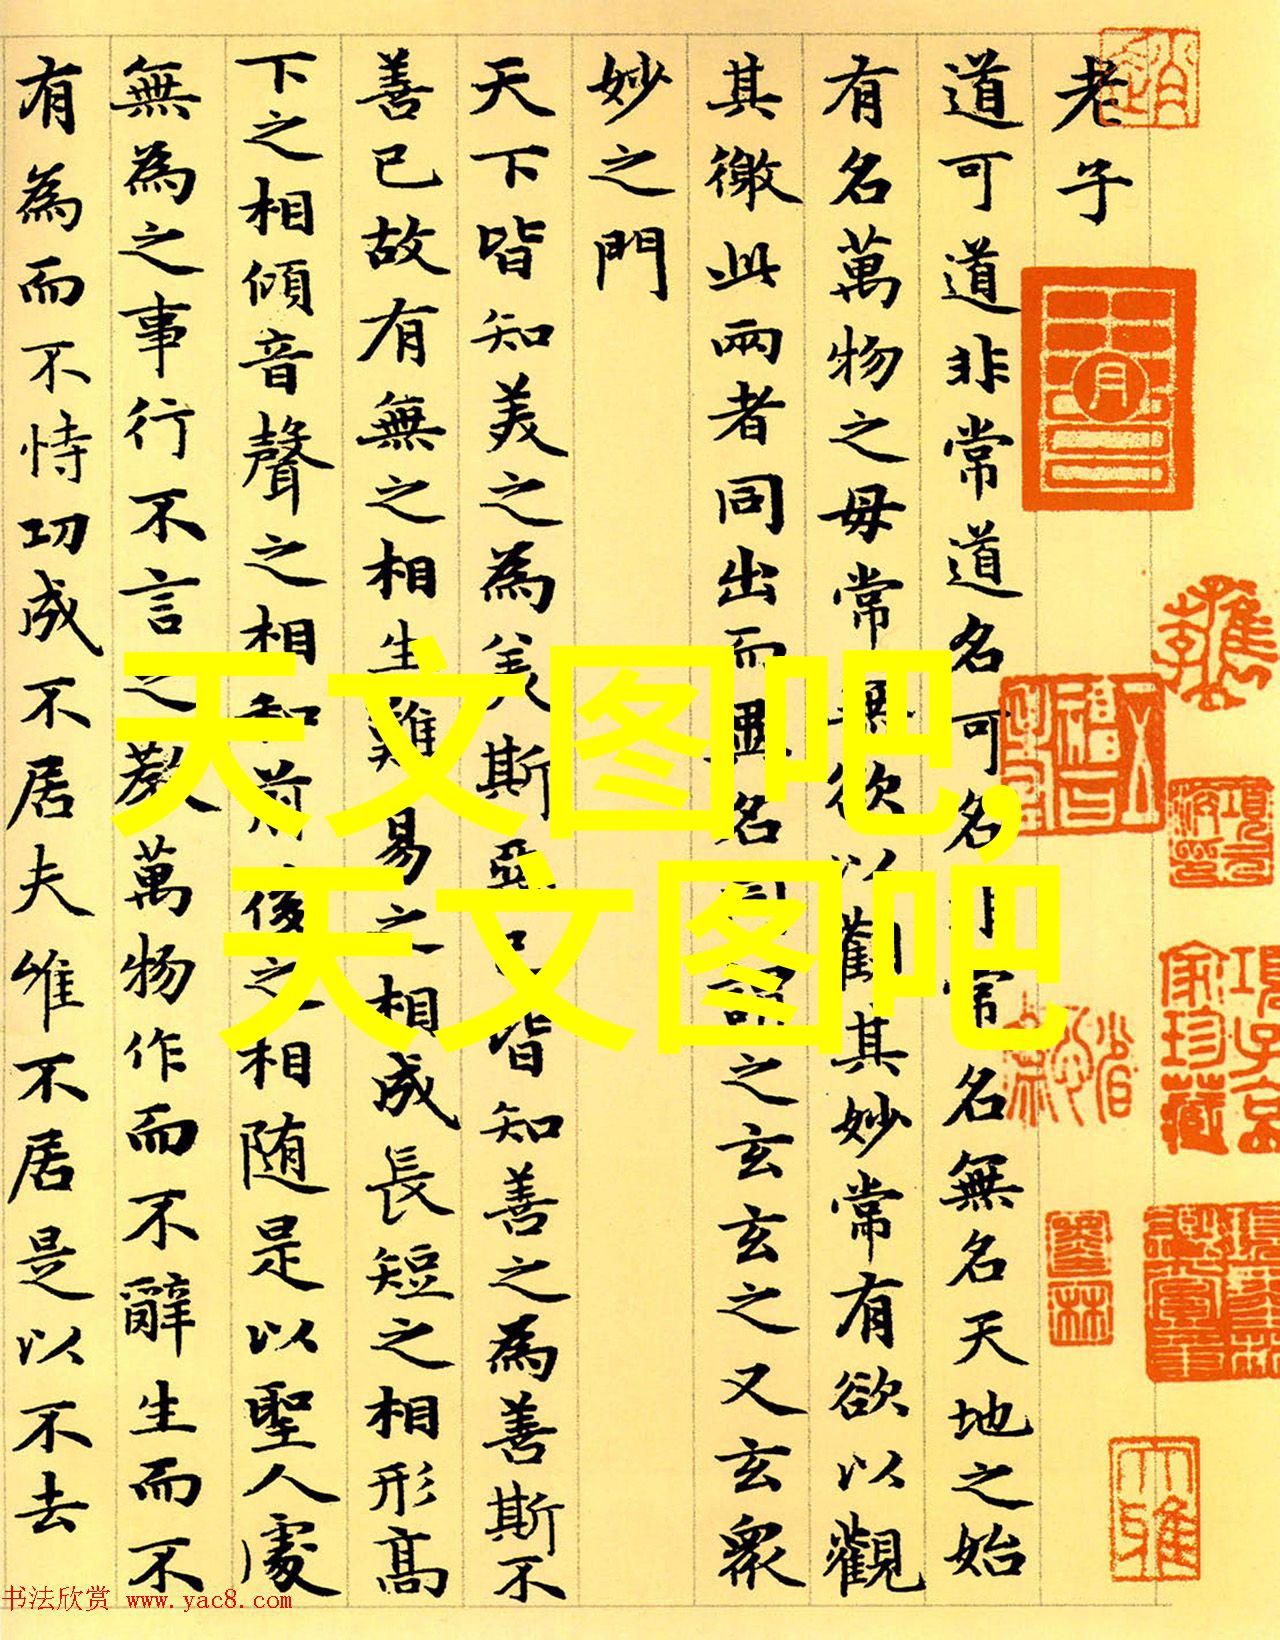 老子
道可道非常道名可名非常名無名天地之始
有名萬物之母常無欲以觀其妙常有欲以觀
其徼此兩者同出而異名同謂之玄玄之又玄衆
妙之門
天下皆知美之為美斯惡已皆知善之為善斯不
善已故有無之相生難易之相成長短之相形高
下之相傾音聲之相和前後之相随是以聖人處
無為之事行不言之教萬物作而不辭生而不
有為而不恃功成不居夫惟不居是以不去
項子京
家珍藏
天文图吧,
天文图吧
书法欣赏 www.yac8.com